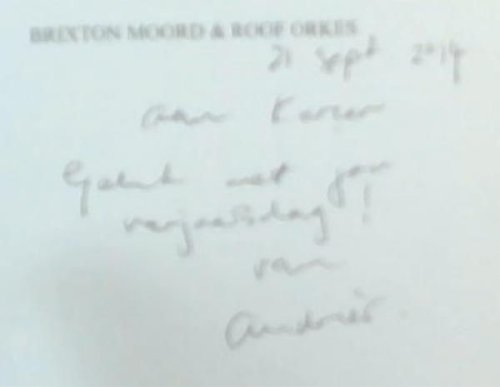 BRIXTON MOORD & ROOF ORKES
21 Sept 2014
aan Karen
Geluk met jou
verjaarsdag!
van
Andries.